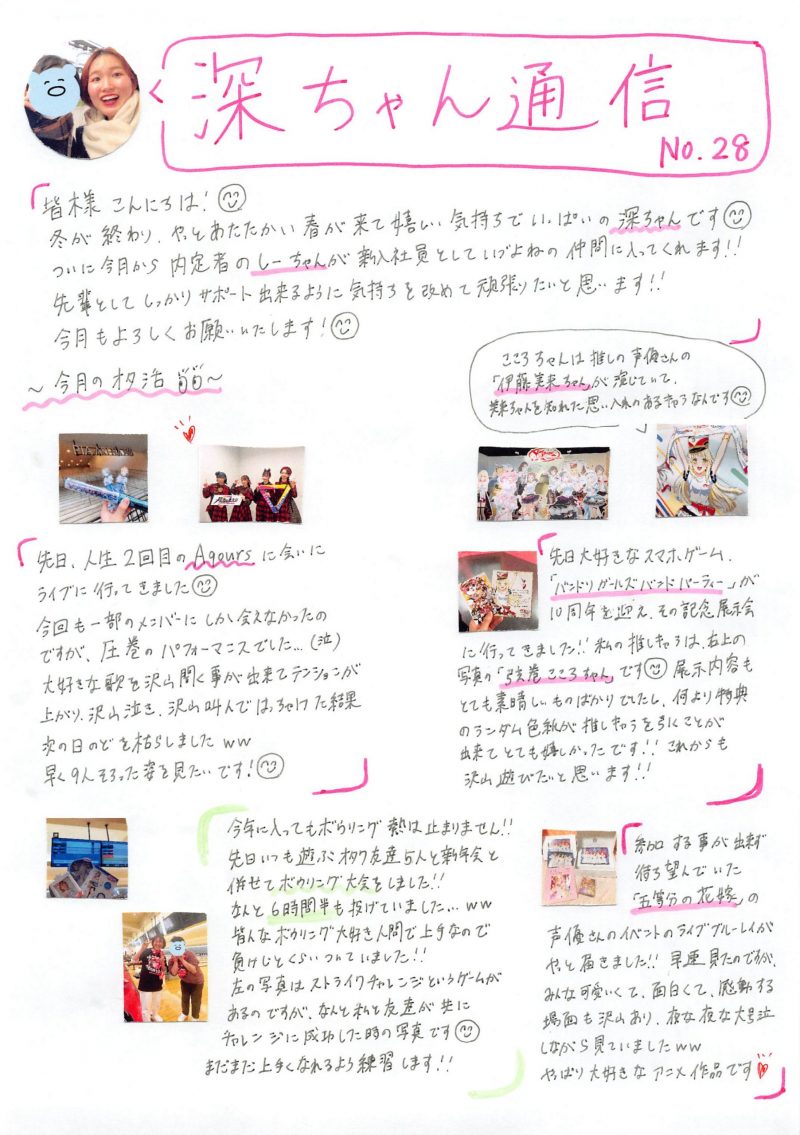 深ちゃん通信
No.28
皆様こんにちは!
冬が終わり、やっとあたたかい春が来て嬉しい気持ちでいっぱいの深ちゃんです
ついに今月から内定者のしーちゃんが新入社員としていづよねの仲間に入ってくれます!!
先輩としてしっかりサポート出来るように気持ちを改めて頑張りたいと思います!!
今月もよろしくお願いいたします!
~今月のオタ活~
こころちゃんは推しの声優さんの
「伊藤美来ちゃん」が演じていて、
美来ちゃんを知れた思い入れのあるキャラなんです
先日、人生2回目のAqoursに会いに
ライブに行ってきました
今回も一部のメンバーにしか会えなかったの
ですが、圧巻のパフォーマンスでした…(泣)
大好きな歌を沢山聞く事が出来てテンションが
上がり、沢山泣き、沢山叫んではっちゃけた結果
次の日のどを枯らしましたww
早く9人そろった姿を見たいです!
先日大好きなスマホゲーム、
「バンドリガールズバンドパーティー」が
10周年を迎え、その記念展示会
に行ってきました!!私の推しキャラは、右上の
写真の「弦巻こころちゃん」です展示内容も
とても素晴しいものばかりでしたし、何より特典
のランダム色紙が推しキャラを引くことが
出来てとても嬉しかったです!!これからも
沢山遊びたいと思います!!
今年に入ってもボウリング熱は止まりません!!
先日いつも遊ぶオタク友達5人と新年会と
併せてボウリング大会をしました!!
なんと6時間半も投げていました…ww
皆んなボウリング大好き人間で上手なので
負けじとくらいついていました!!
左の写真はストライクチャレンジというゲームが
あるのですが、なんと私と友達が共に
チャレンジに成功した時の写真です
まだまだ上手くなれるよう練習します!!
参加する事が出来ず
待ち望んでいた
「五等分の花嫁」の
声優さんのイベントのライブブルーレイが
やっと届きました!!早速見たのですが、
みんな可愛いくて、面白くて、感動する
場面も沢山あり、夜な夜な大号泣
しながら見ていましたww
やっぱり大好きなアニメ作品です